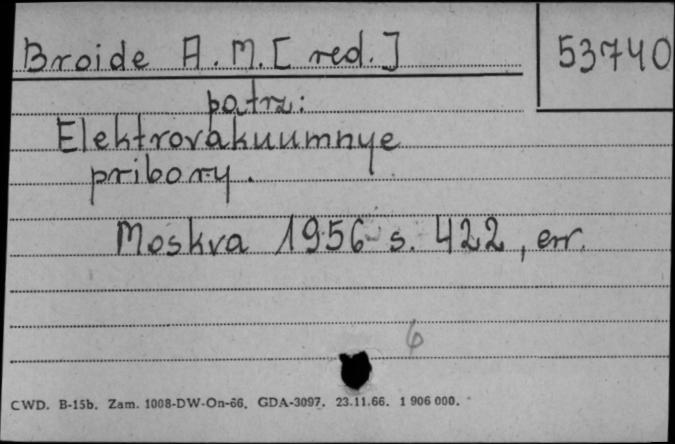 Broide A.M. [red.]
53740
patrz:
Elektrovakuumnye
pribory.
Moskva 1956 s. 422, err.
6
CWD. B-15b. Zam. 1008-DW-On-66. GDA-3097. 23.11.66. 1 906 000.